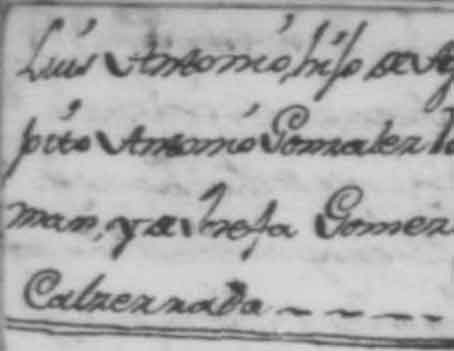 Luis Antonio, hijo de Ag
pito Antonio Gonzalez Ro
man, y de Josefa Gomez
Calzerrada